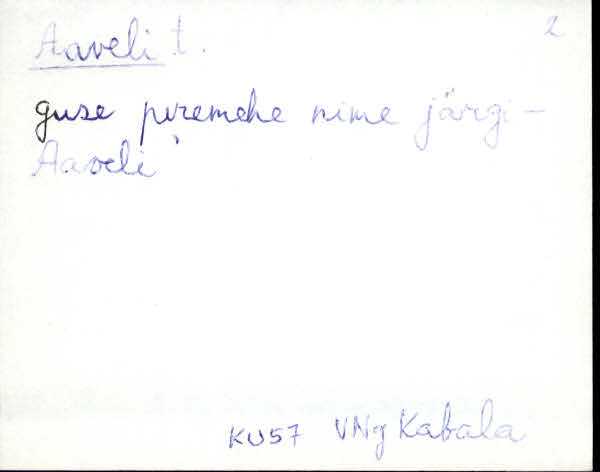 Aaveli t. 2
guse peremehe nime järgi -
Aaveli
KU57 VNg Kabala